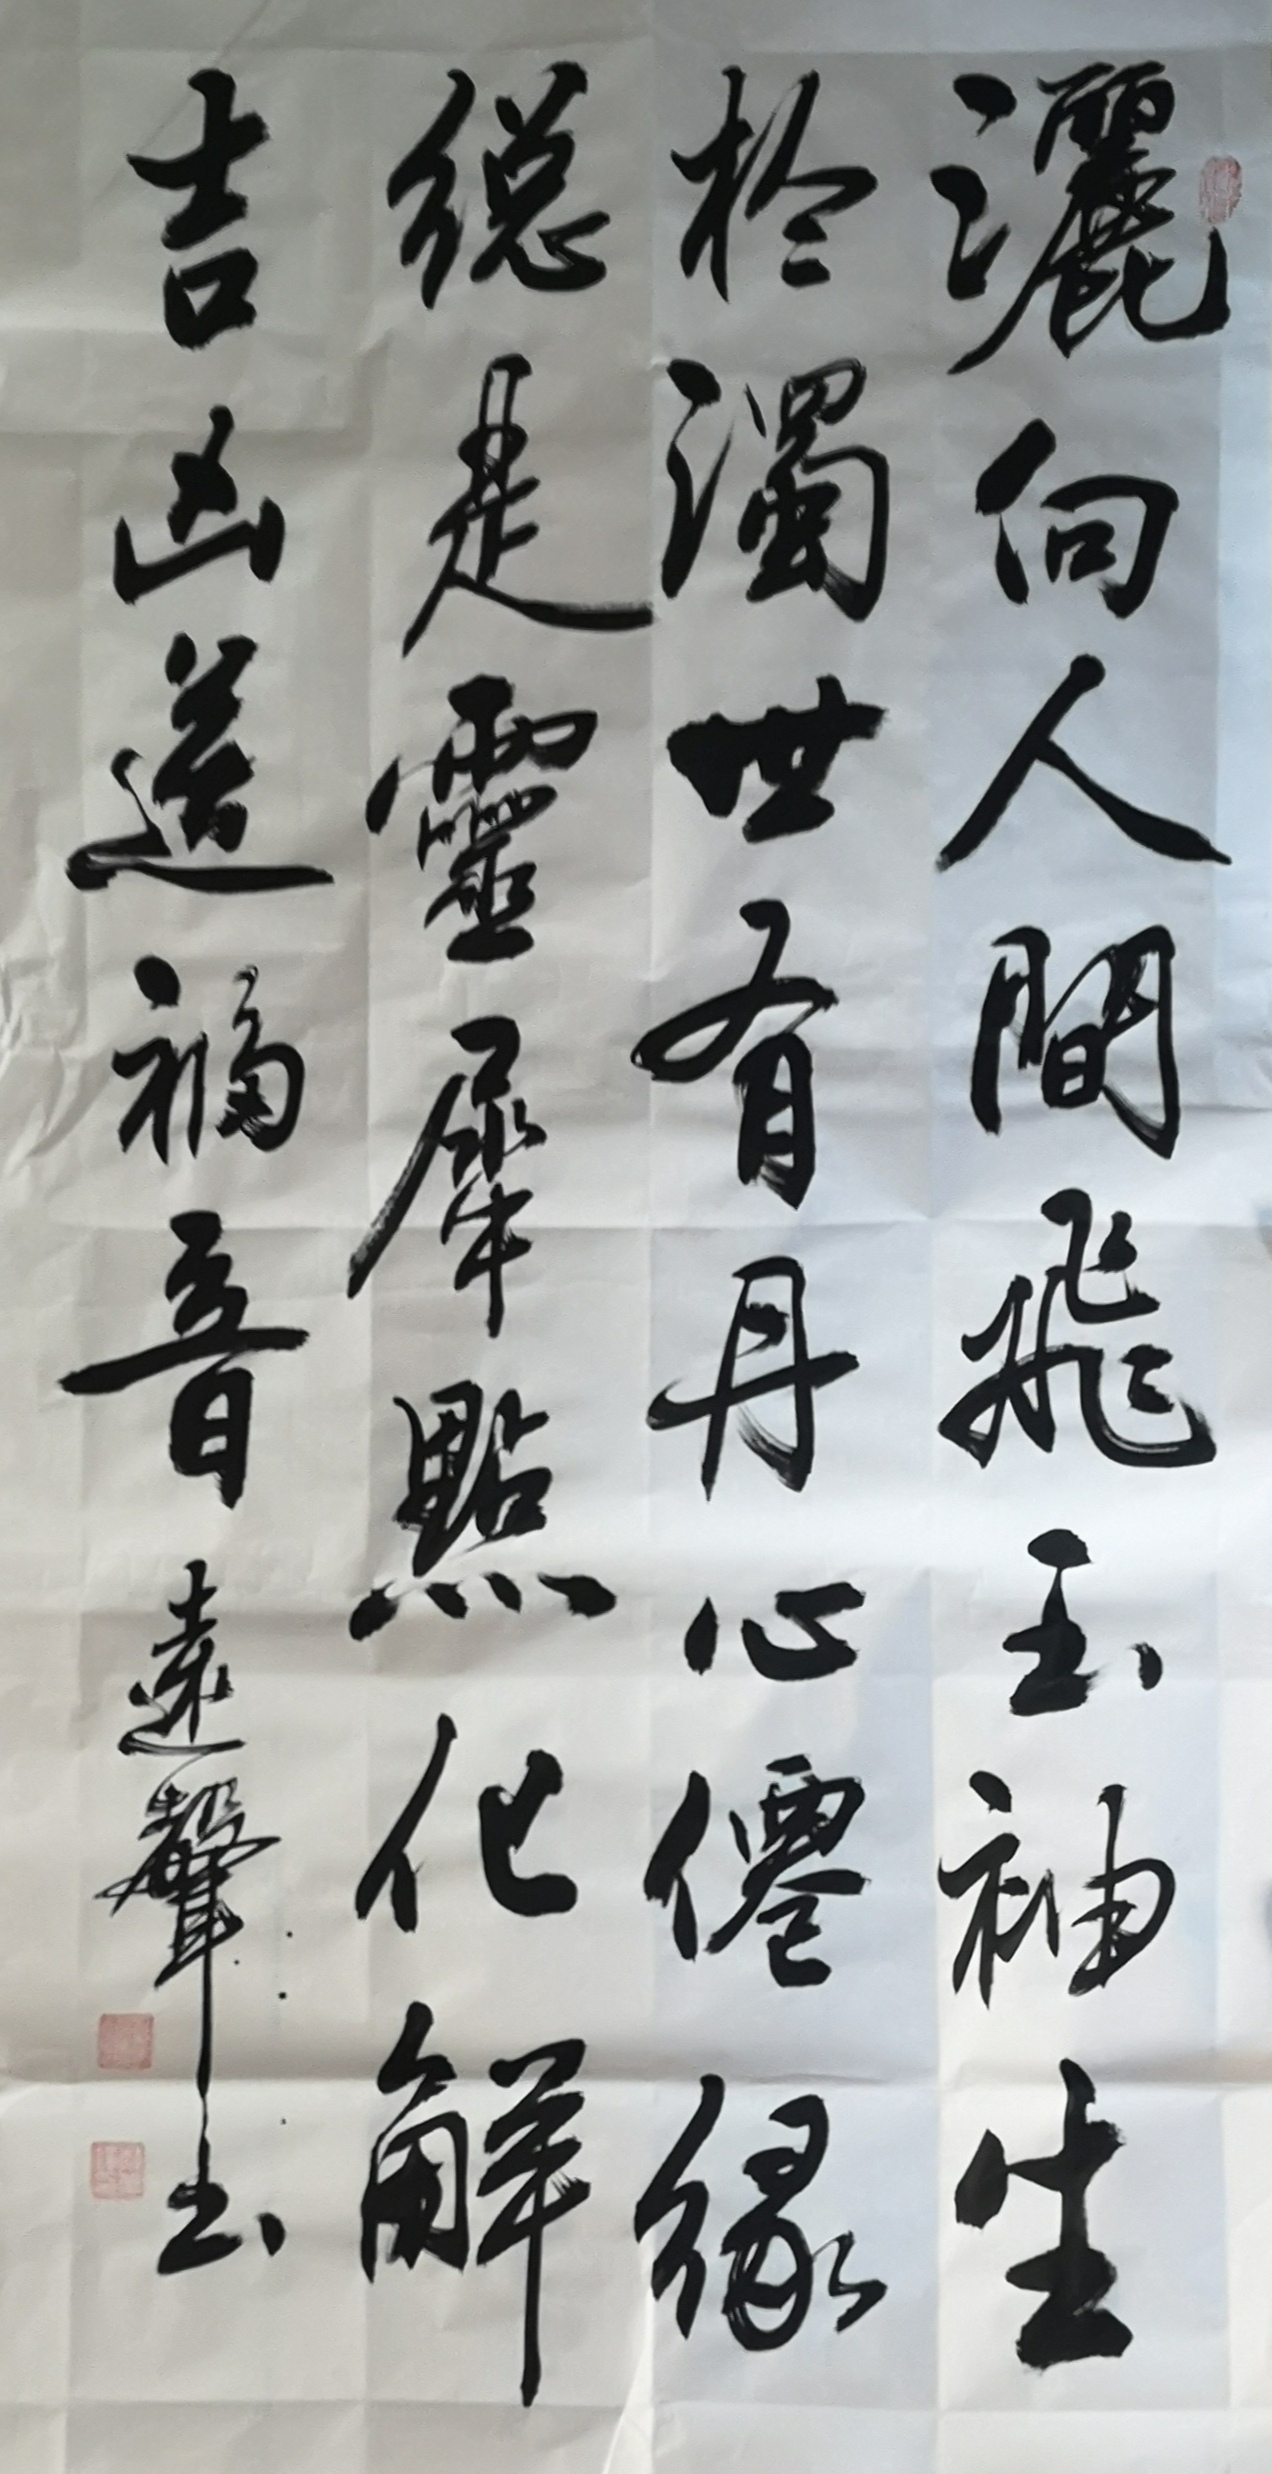 灑向人間飛玉袖生
於濁世有丹心僊緣
總是靈犀點化解
吉凶送福音 遠聲玉